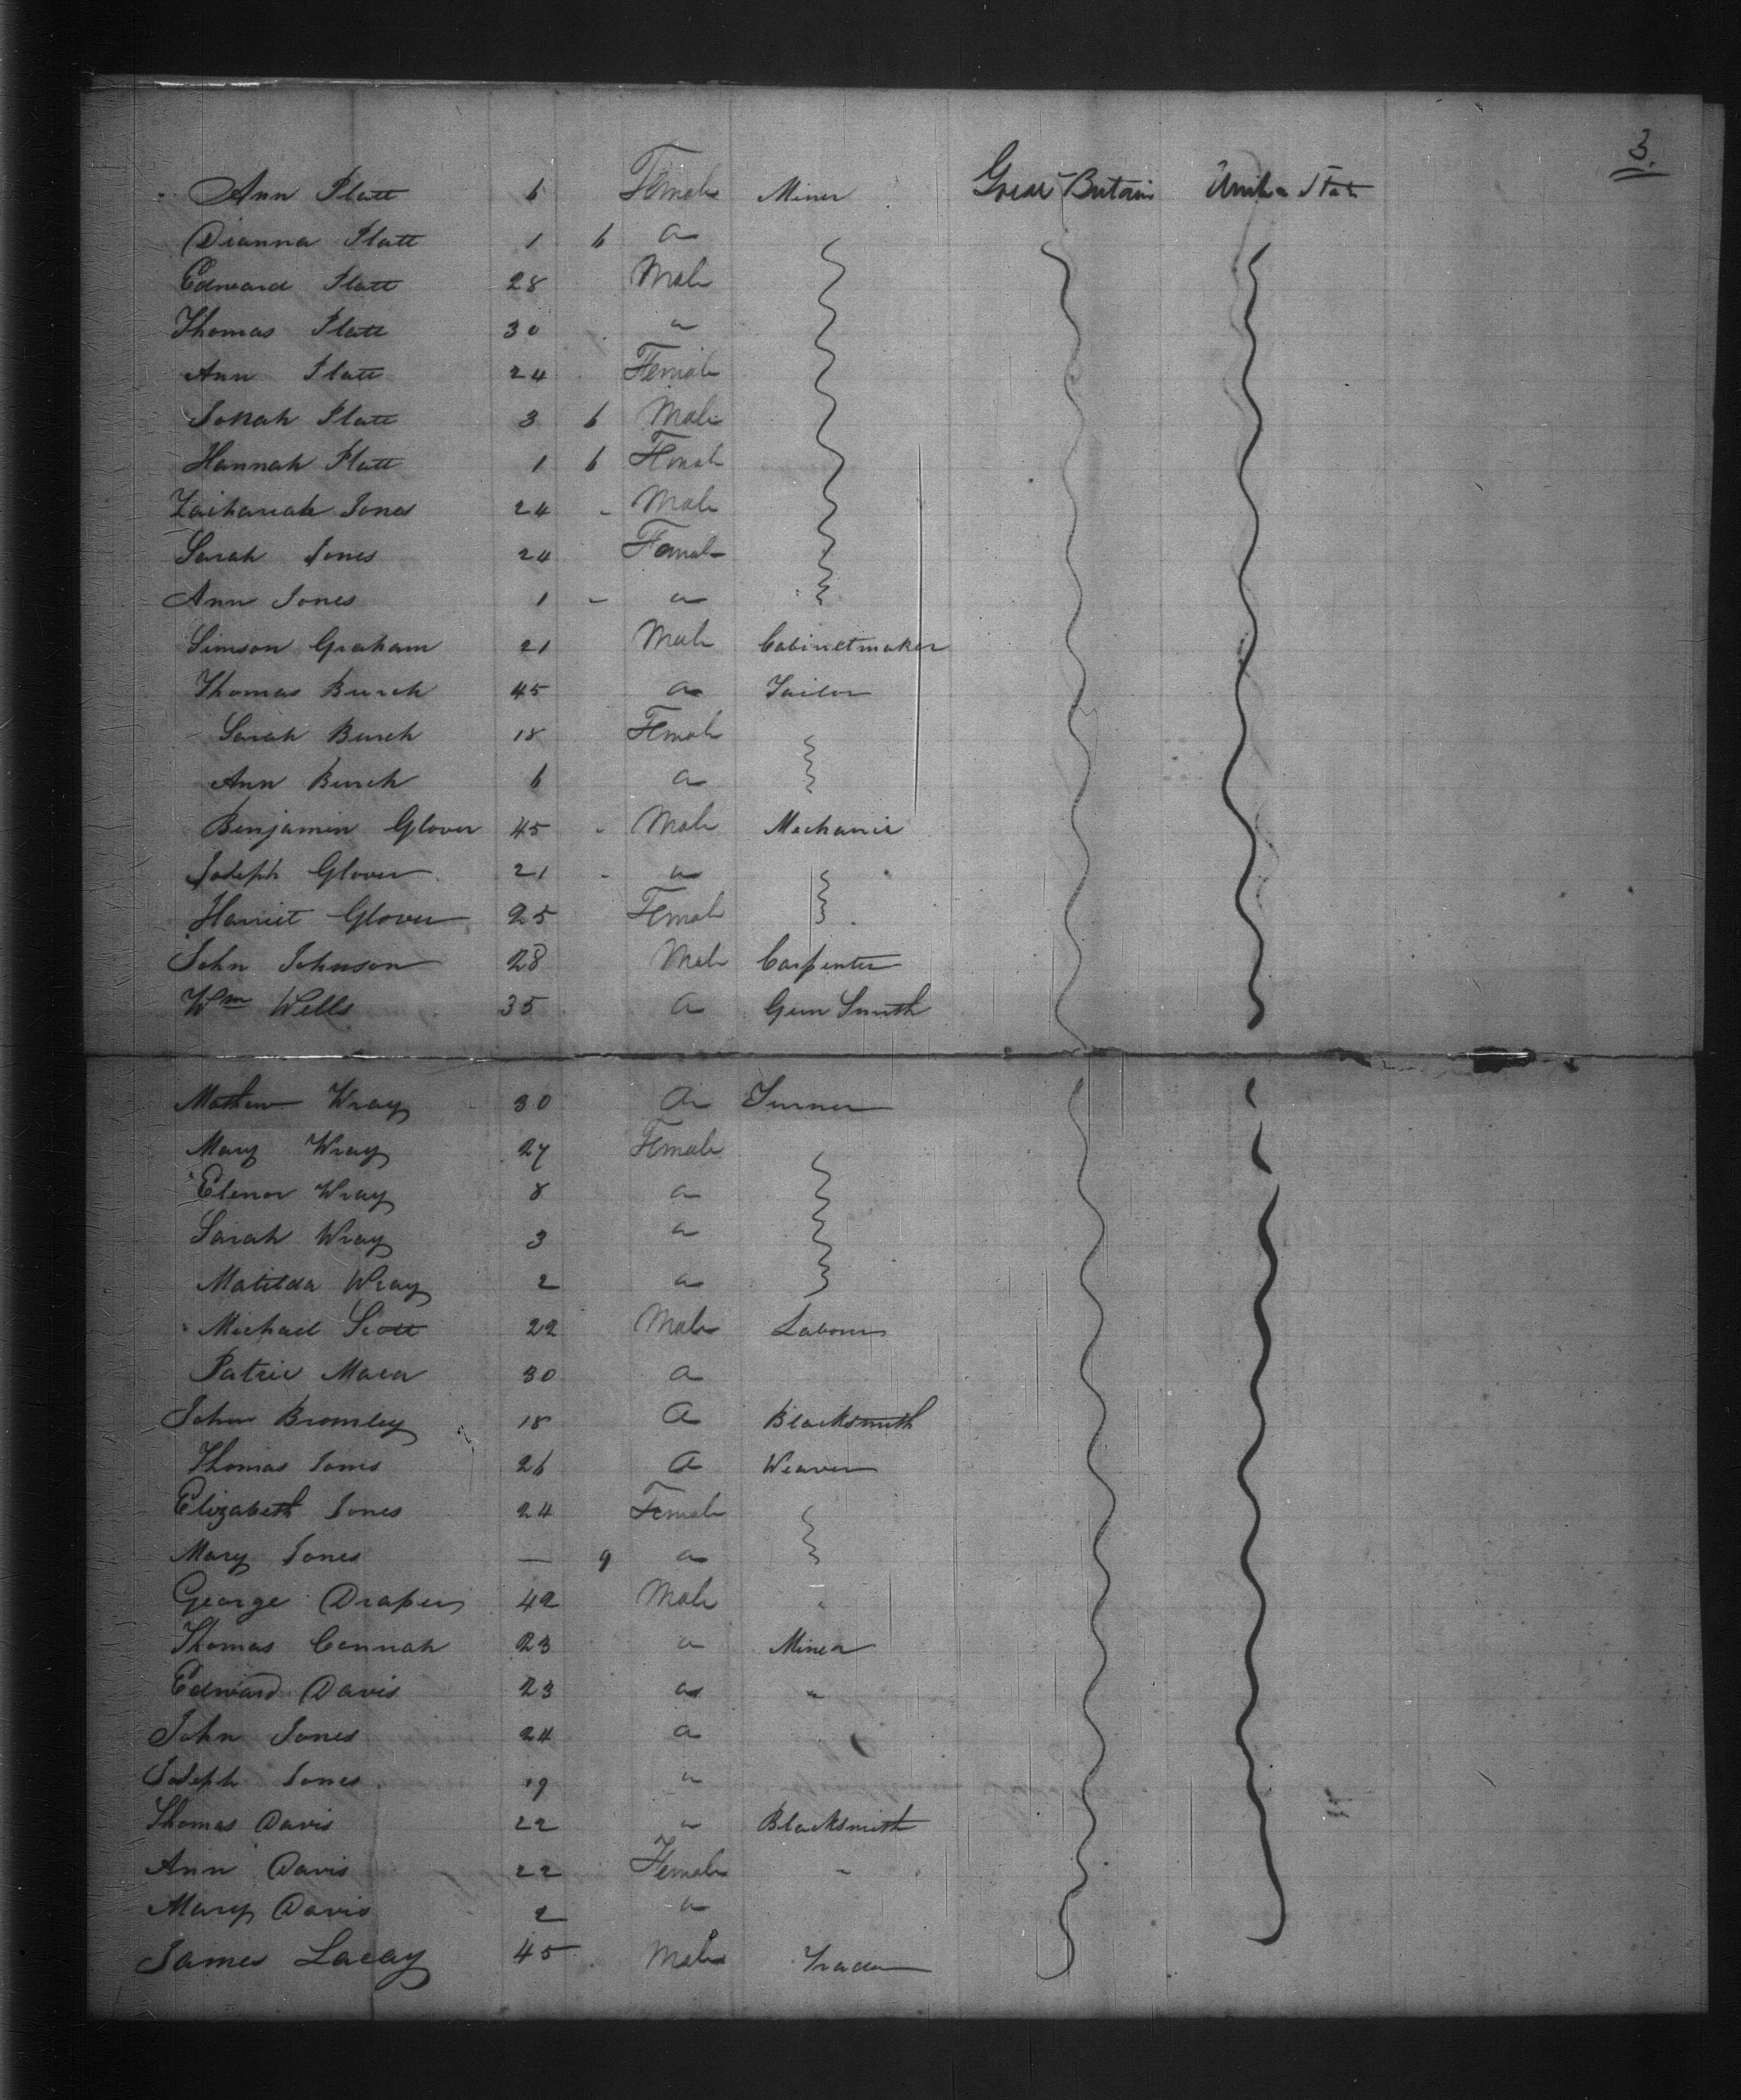 3.
Ann Platt 6 Female Miner Great Britain United State
Dianna Platt 1 6 a
Edward Platt 28 Male
Thomas Platt 30 "
Ann Platt 24 Female
Jonah Platt 3 6 Male
Hannah Platt 1 6 Female
Zachariah Jones 24 - Male
Sarah Jones 24 Female
Ann Jones 1 - a
Simson Graham 21 Male Cabinetmaker
Thomas Burch 45 a Tailor
Sarah Burch 18 Female
Ann Burch 6 a
Benjamin Glover 45 - Male Mechanic
Joseph Glover 21 - a
Harriet Glover 25 Female
John Johnson 28 Male Carpenter
Wm Wells 35 a Gun Smith
Mathew Wray 30 a Turner
Mary Wray 27 Female
Elenor Wray 8 a
Sarah Wray 3 a
Matilda Wray 2 a
Michael Scott 22 Male Labourer
Patric Mara 30 a
John Bromley 18 a Blacksmith
Thomas Jones 26 a Weaver
Elizabeth Jones 24 Female
Mary Jones — 9 a
George Draper 42 Male "
Thomas Cannah 23 a Miner
Edward Davis 23 a "
John Jones 24 a
Joseph Jones 19 a
Thomas Davis 22 a Blacksmith
Ann Davis 22 Female "
Mary Davis 2 a
James Lacay 45 Male Trader